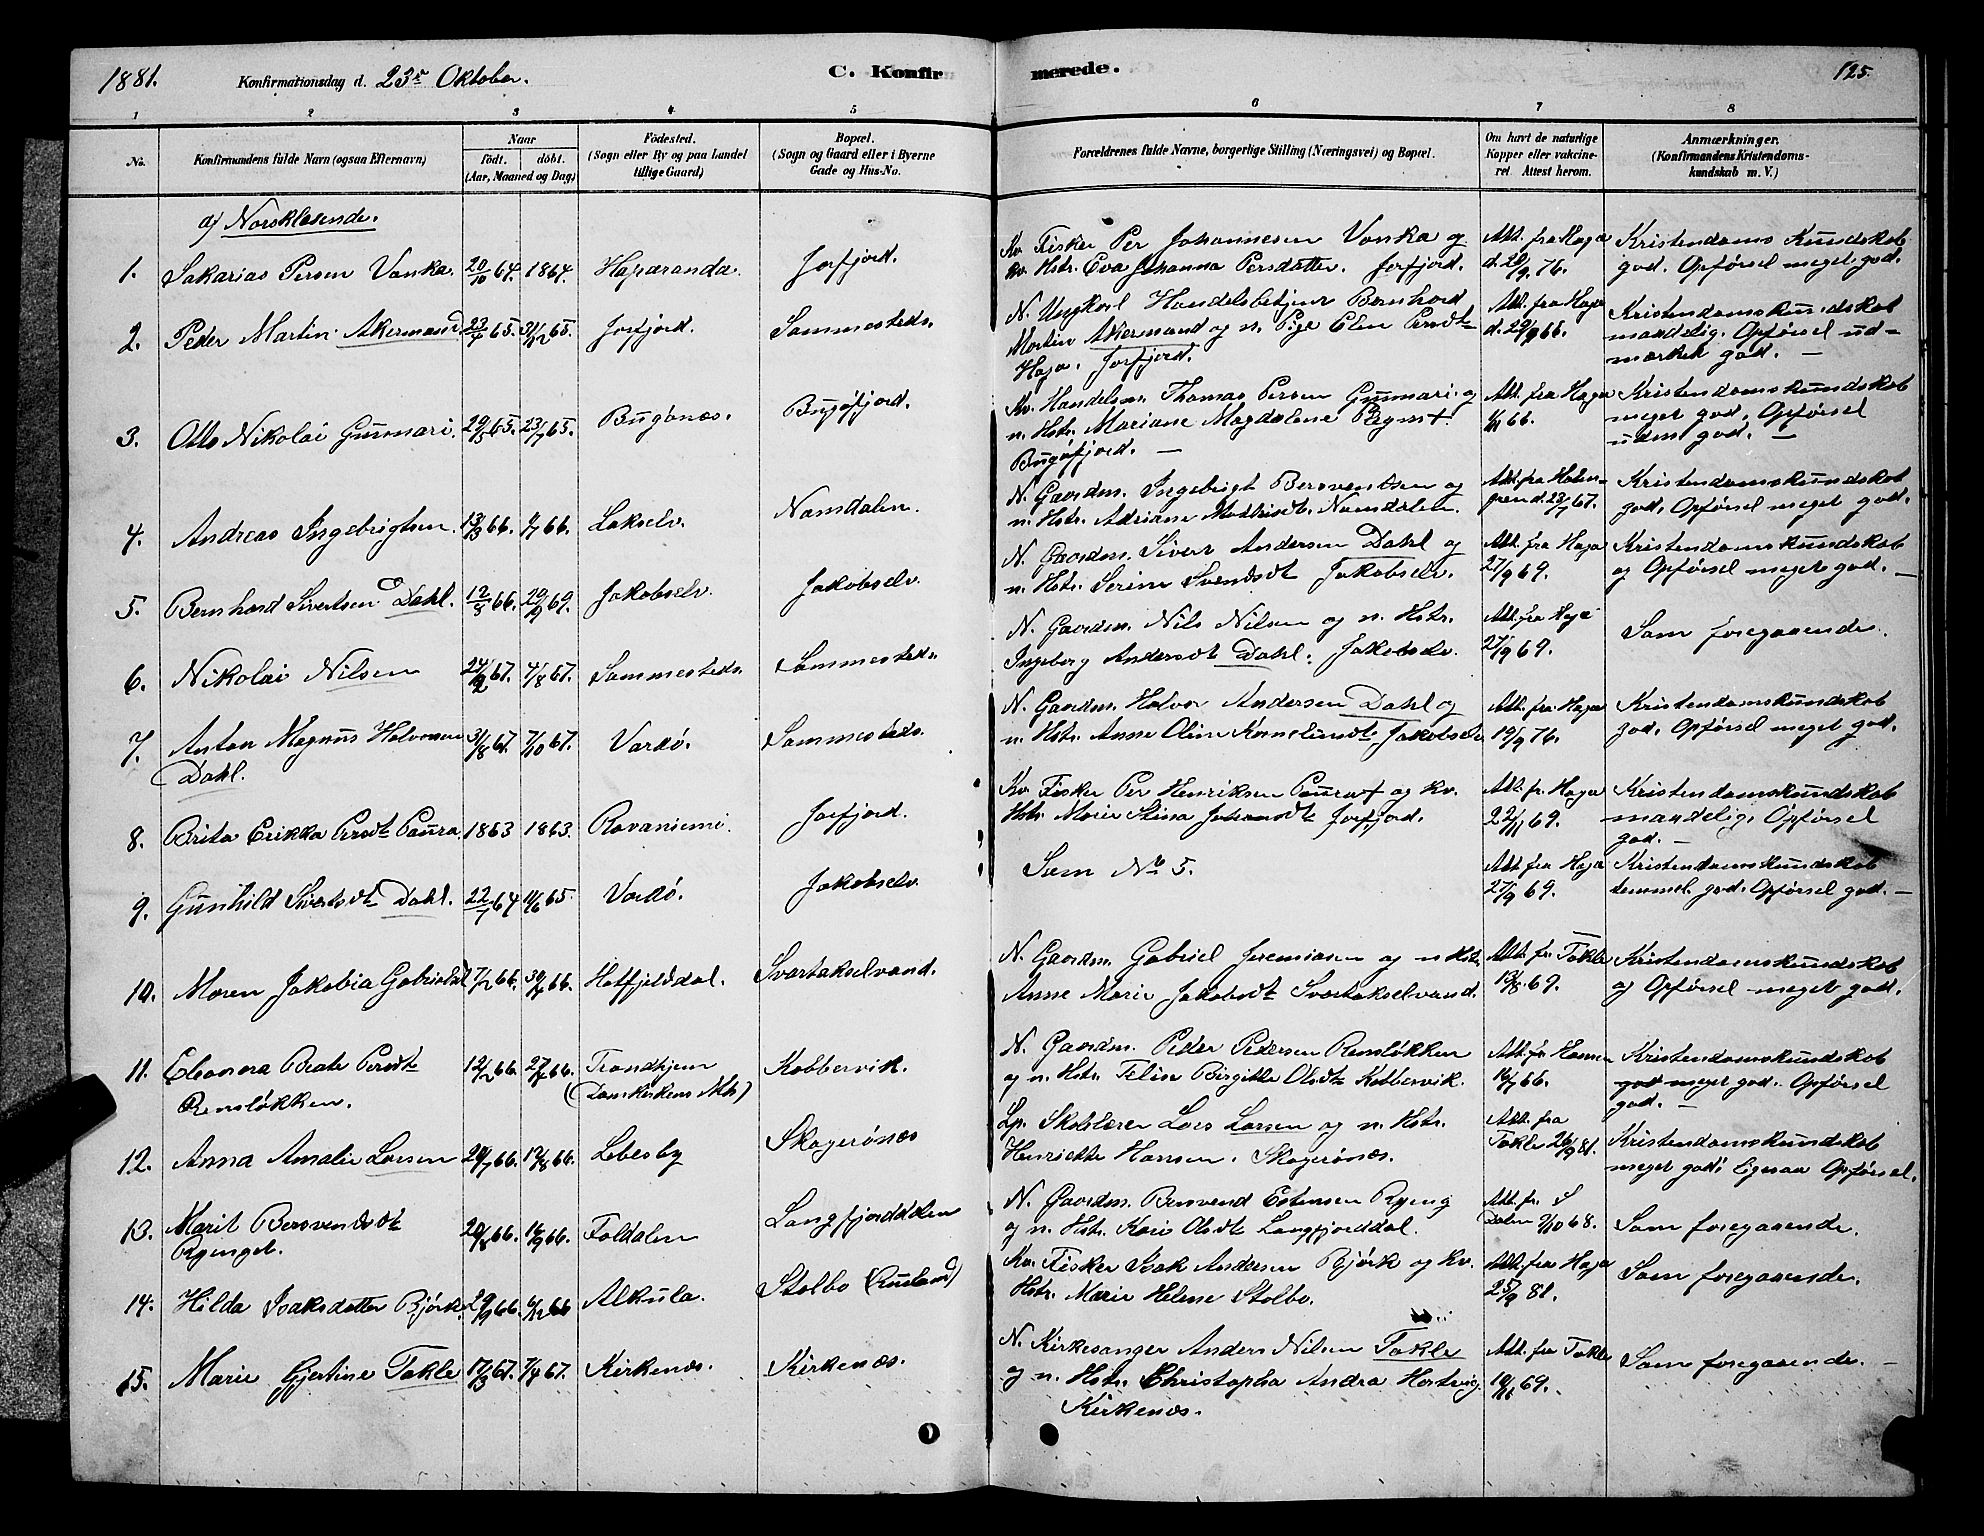 1881. Konfirmationsdag d. 23de Oktober. C. Konfirmerede. 125.
1 2 3 4 5 6 7 8
No. Konfirmandens fulde Navn (ogsaa Efternavn) Naar født. døbt. (Aar, Maaned og Dag) Fødested. (Sogn eller By og paa Landet tillige Gaard) Bopæl. (Sogn og Gaard eller i Byerne Gade og Hus-No. Forældrenes fulde Navne, borgerlige Stilling (Næringsvei) og Bopæl. Om havt de naturlige Kopper eller vakcineret. Attest herom. Anmærkninger. (Konfirmandens Kristendomskundskab m. V.)
a) Norsklæsende.
1. Sakarias Persen Vanka. 20/10 64. 1864. Haparanda. Jarfjord. Kv. Fisker Per Johannesen Vanka og
kv. Hstr. Eva Johanna Persdatter. Jarfjord. Att. fra Haga d. 20/9 76. Kristendoms Kundskab
god. Opførsel meget god.
2. Peder Martin Akermand 23/4 65. 31/12 65. Jarfjord. Sammesteds. N. Ungkarl Handelsbetjent Bernhard
Martin Akermand og n. Pige Elen Ersdt
Haja. Jarfjord. Att. fra Haga d. 29/9 66. Kristendomskundskab
maadelig. Opførsel ud-
mærket god. —
3. Otto Nikolai Gunnari. 29/5 65. 23/7 65. Bugønæs. Bugøfjord. Kv. Handelsm. Thomas Persen Gunnari og
n. Hstr. Mariane Magdalene
Bugøfjord. — Att. fra Haga 1/11 66. Kristendomskundskab
meget god. Opførsel
uden god. —
4. Andreas Ingebrigtsen. 13/3 66. 1/7 66. Lakselv. Namdalen. N. Gaardm. Ingebrigt Bersventsen og
n. Hstr. Adriane Mathisdt. Namdalen. Att. fra d. 28/7 67. Kristendomskundskab
god. Opførsel meget god.
5. Bernhard Sivertsen Dahl. 12/5 66. 29/9 69. Jakobselv. Jakobselv. N. Gaardm. Sivert Andersen Dahl og
n. Hstr. Serine Svendsdt Jakobselv. Att. fra Haga 27/9 69. Kristendomskundskab
og Opførsel meget god. —
6. Nikolai Nilsen 24/2 67. 4/8 67. Sammesteds. Sammesteds. N. Gaardm. Nils Nilsen og n. Hstr.
Ingeborg Andersdt Dahl. Jakobselv. Att. fra Haga 27/9 69. Som foregaaende.
7. Anton Magnus Halvorsen
Dahl. 31/8 67. 7/10 67. Vardø. Sammesteds. N. Gaardm. Halvor Andersen Dahl og
n. Hstr. Anne Oline Kornelíusdt, Jakobselv Att. fra Haga 19/9 76. Kristendomskundskab
god. Opførsel meget god.
8. Brita Erikka Persdt Paura. 1863 1863. Rovaniemi. Jarfjord. Kv. Fisker Per Henriksen Paura og kv.
Hstr. Marie Stina Johansdt Jarfjord. Att. fr. Haga 22/11 69. Kristendomskundskab
maadelig. Opførsel
god. —
9. Gunhild Sivertsdt Dahl. 22/7 64 11/6 65. Vardø. Jakobselv. Som No 5. Att. fra Haga 27/9 69. Kristendomskundskab
temmel. god. Opførsel god. —
10. Maren Jakobia Gabrielsdt 7/2 66. Hatfjelddal. Svartakselvand. N. Gaardm. Gabriel Jeremiasen og n. Hstr.
Anne Marie Jakobsdt Svartakselvand. Att. fr. Takle 13/8 69. Kristendomskundskab
og Opførsel meget god.
11. Eleonora Beate Persdt
Rensløkken. 12/2 66. Trondhjem
(Domkirkens Mh) Kobbervik. N. Gaardm. Peder Pedersen Rensløkken
og n. Hstr. Birgitte Olsdt Kobbervik. Att. fr. Hansen 16/7 66. Kristendomskundskab
god meget god. Opførsel
god. —
12. Anna Amalie Larsen 66. 19/8 66. Lebesby Skogerønæs Lp. Skolelærer Lars Larsen og n. Hstr.
Henriette Hansen. Skogerønæs. Att. fra Takle 26/9 81. Kristendomskundskab
meget god; Egesaa Opførsel.
13. Marit Bersvendsdt
Ryenget. 66. 16/9 66. Foldalen Langfjorddalen N. Gaardm. Bersvend Estensen Ryeng
og n. Hstr. Kari Olsdt Langfjorddal. Att. fr. Dalen 9/10 68. Som foregaaende.
14. Hilda Isaksdatter Bjørk. 66. 66 Alkula. Stolbo (Rusland) Kv. Fisker Isak Andersen Bjørk og kv.
Hstr. Marie Helene Stolbo. Att. fra Haga 25/9 81. Som foregaaende.
15. Marie Gjertine Takle 17/3 67. 7/4 67. Kirkenæs. Kirkenæs. N. Kirkesanger Anders Nilsen Takle
og n. Hstr. Christopha Andra Hartvig.
Kirkenæs. Att. fra Takle 69. Som foregaaende. —